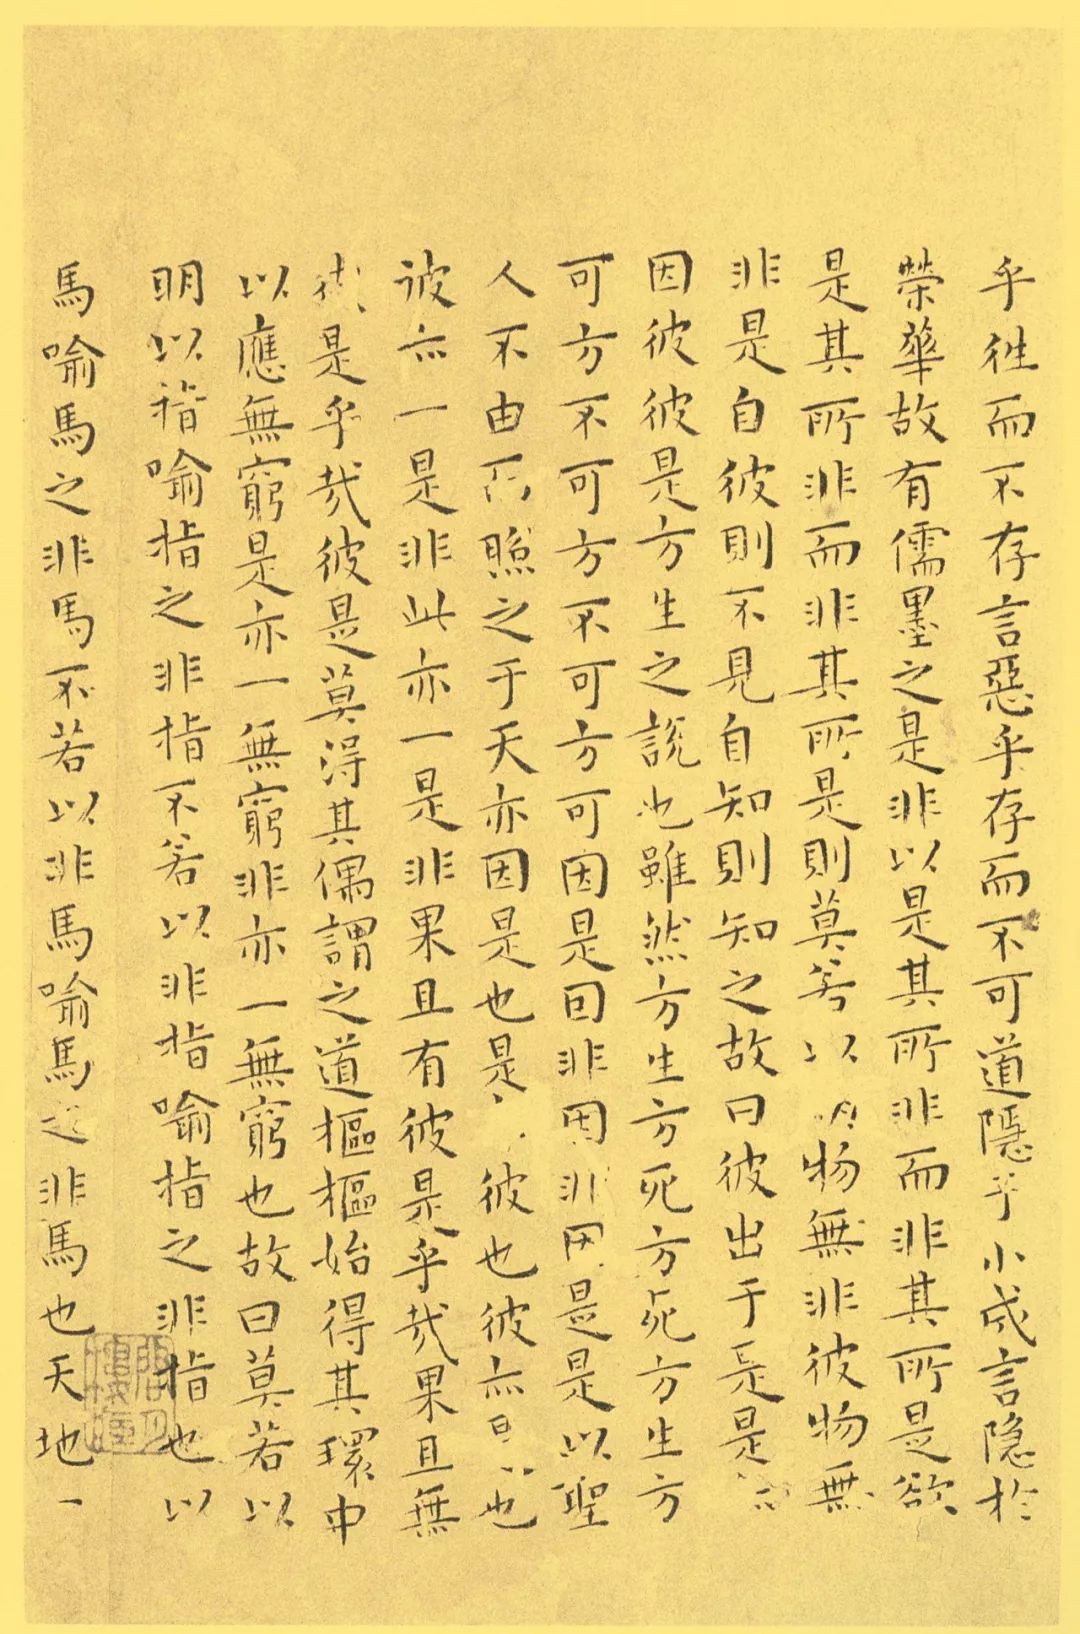 乎往而不存言惡乎存而不可道隱乎小成言隐於
榮華故有儒墨之是非以是其所非而非其所是欲
是其所非而非其所是則莫若以明物無非彼物無
非是自彼則不見自知則知之故曰彼出于是是
因彼彼是方生之說也雖然方生方死方死方生方
可方不可方不可方可因是因非因非因是是以聖
人不由而照之于天亦因是也是彼也彼亦是也
彼亦一是非此亦一是非果且有彼是乎哉果且無
彼是乎哉彼是莫得其偶謂之道樞樞始得其環中
以應無窮是亦一無窮非亦一無窮也故曰莫若以
明以指喻指之非指不若以非指喻指之非指也以
馬喻馬之非馬不若以非馬喻馬之非馬也天地一